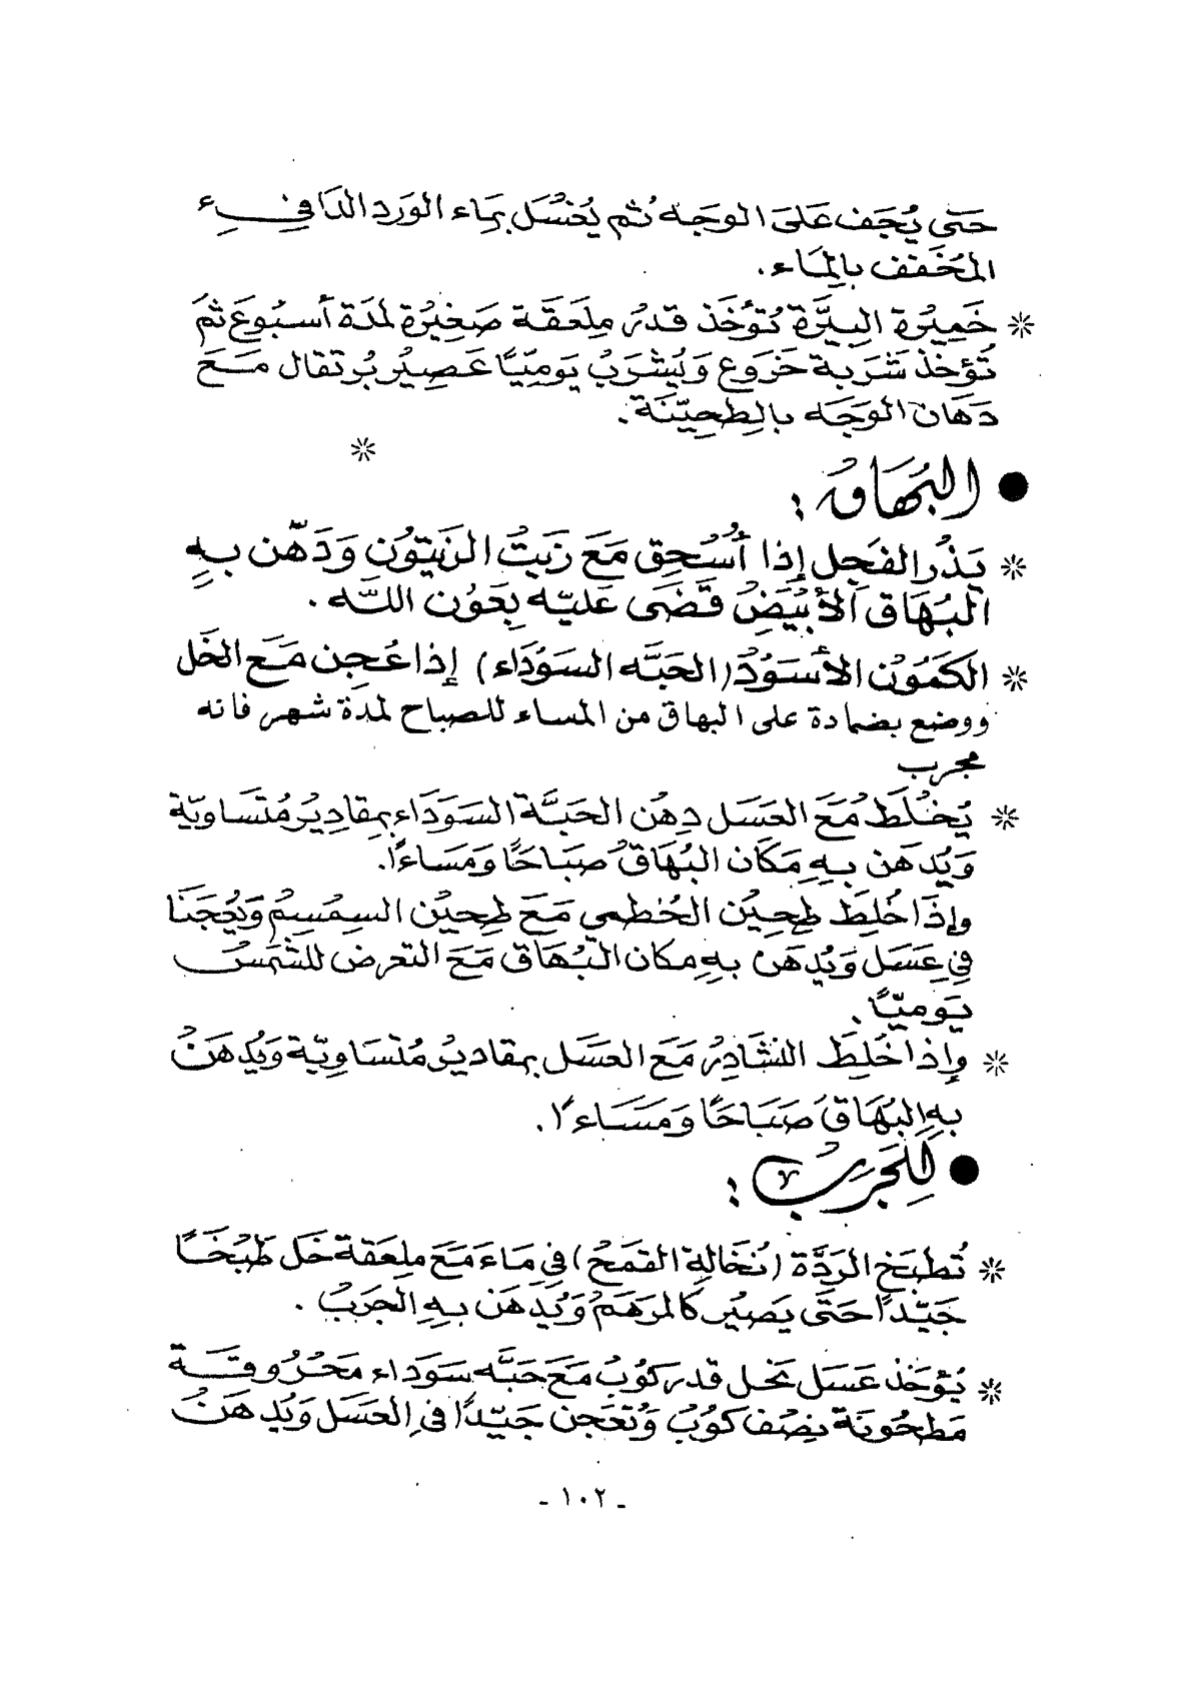 حَتى يُجَف عَلىَ الوجَه ثم يُغسُل بمَاء الورَد الدَافِىء
المُخَفف بالمَاء.
* خَمِيرُة البِيَرَّة تُؤخَذ قدرُ مِلعَقَة صَغِيرُة لمدَة أسبُوعَ ثمَ
تُؤخذ شَرَبة خَرَوع وَيُشرَبُ يَوميّاً عَصِيُر بُرتقال مَعَ
دَهَان الوَجَه بالِطحِيّنَة.
*
● البُهَاقُ :
* بَذُر الفَجِل إذا أُسُحِق مَعَ زَيتَ الزَيتوُن وَدَهّن بهِ
البُهَاق الأبيَضِ قَضَى عَليّه بِعَوُن اللَّه .
* الكَمَوُن الأسَوُدُ (الحَبَّه السَوُدَاء) إذا عُجِن مَعَ الخَل
ووضع بضمادة على البهاق من المساء للصباح لمدة شهر فانه
مجرب
* يُخلَط مَعَ العَسَل دِهُن الحَبَّة السَوَدَاء بمِقادِيُر مُتَساويّة
وَيُدهَن بهِ مِكَان البُهَاقُ صَبَاحًا وَمَسَاءًا.
وإذَا خُلِطَ طحِيُن الخُطمي مَعَ طحِيُن السِمُسِمُ وَيُعجَنَا
فيِ عَسَل وَيُدهَنُ بهِ مِكان البُهَاق مَعَ التعرض للشَمسُ
يَوميّاً.
* وإذا خَلِطَ النشَادِرُ مَعَ العسَل بمقاديرُ مُتسَاوِيّة وَيُدهَنُ
بهِ البُهَاقَ صَبَاحًا وَمَسَاءًا.
● لِلجَرَبُ :
* تُطبَخ الرَدَّة (نُخَالةِ القمَحُ) فيِ مَاءَ مَعَ مِلعَقة خَل طَبُخًا
جَيّدًا حَتىَ يَصيُر كَالمرهَمُ وَيُدَهَن بهِ الجَرَبُ .
* يُؤخَذ عَسَل نحل قدر كوُبُ مَعَ حَبَّه سَوَداء مَحُرُوقَة
مَطحُونَة نِصُف كَوُبُ وَتُعجَن جَيّدًا فيِ العَسَل وَيُدهَنُ
- ١٠٢ -